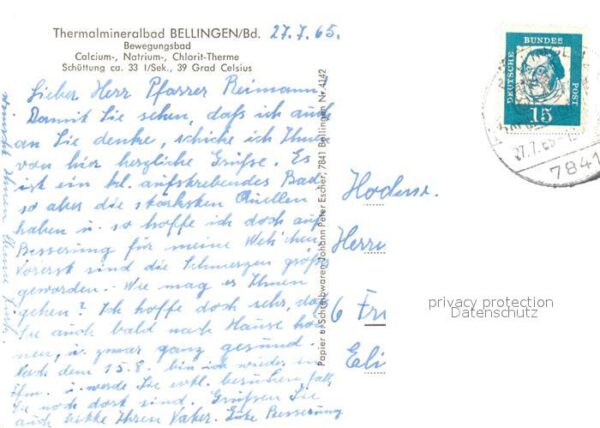 Thermalmineralbad BELLINGEN/Bd. 27.7.65.
Bewegungsbad
Calcium-, Natrium-, Chlorit-Therme
Schüttung ca. 33 l/Sek., 39 Grad Celsius
Lieber Herr Pfarrer Reimann,
Damit Sie sehen, daß ich auch
an Sie denke, schicke ich Ihnen
von hier herzliche Grüße. Es
ist ein kl. aufstrebendes Bad,
so aber die stärksten Quellen
haben u. so hoffe ich doch auf
Besserung für meine Weh'chen.
Vorerst sind die Schmerzen größer
geworden. Wie mag es Ihnen
gehen? Ich hoffe doch sehr, daß
Sie auch bald nach Hause kön-
nen, u. zwar ganz gesund.
Nach dem 15.8. bin ich wieder in
Ffm. u. werde Sie evtl. besuchen, falls
Sie noch dort sind. Grüßen Sie
auch bitte Ihren Vater. Gute Besserung
wünscht Ihnen Ihre
Papier- u. Schreibwaren Johann Peter Escher, 7841 Bellingen Nr. 4142
DEUTSCHE BUNDESPOST
15
27.7.65
7841
Herrn
6 Fr
Eli
privacy protection
Datenschutz